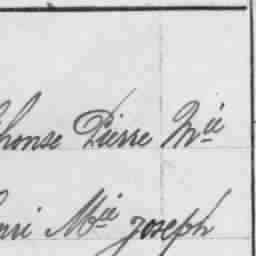 phonse Pierre Mie
enri Mie Joseph